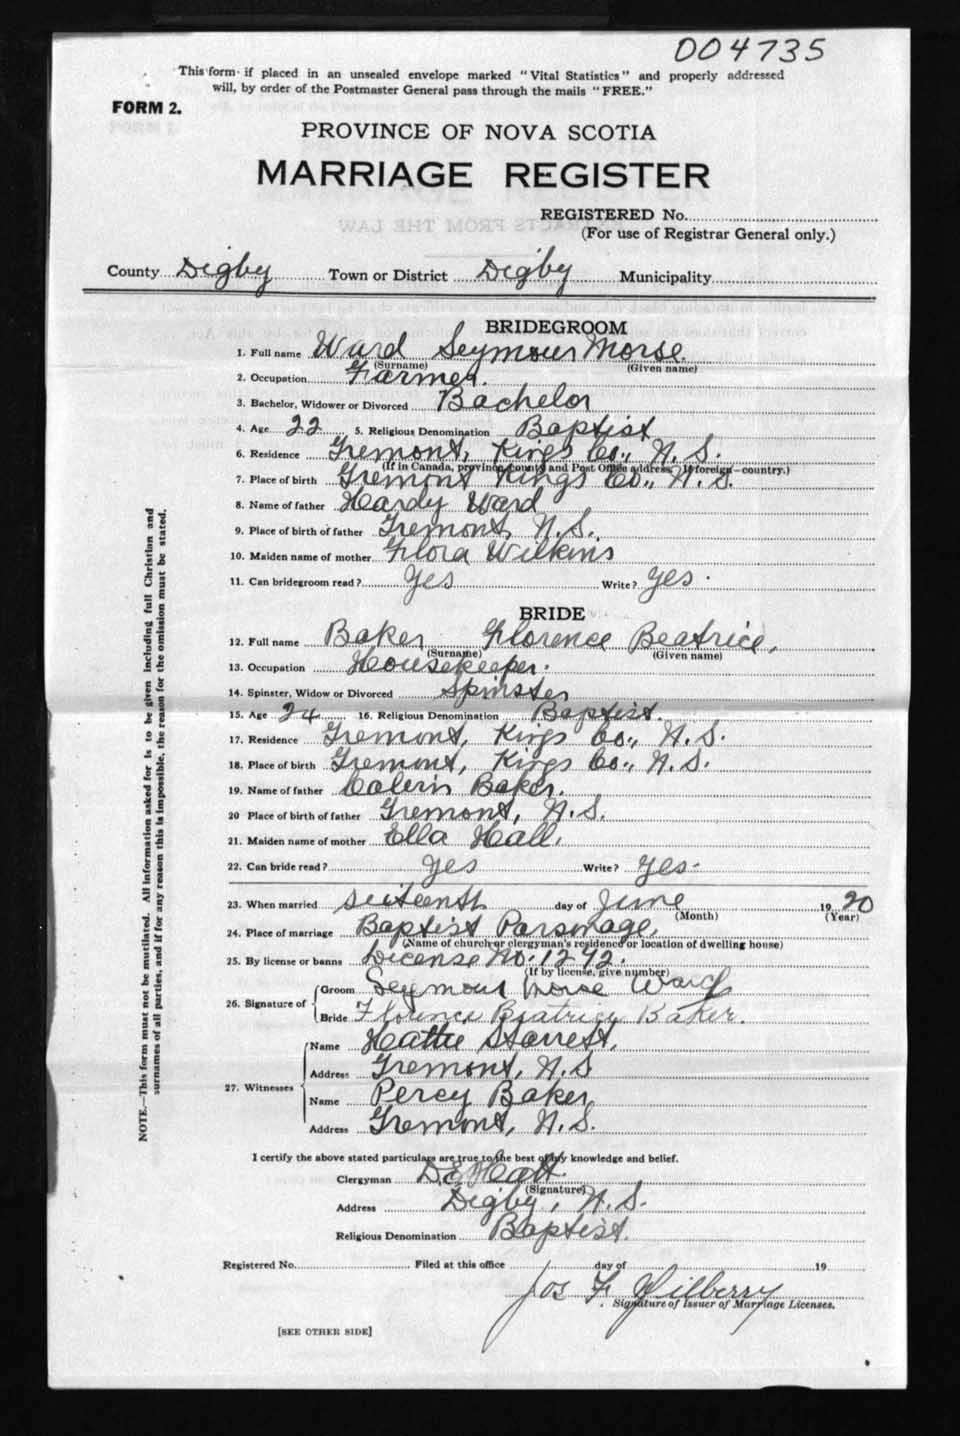 004735
This form if placed in an unsealed envelope marked "Vital Statistics" and properly addressed
will, by order of the Postmaster General pass through the mails "FREE."
FORM 2.
PROVINCE OF NOVA SCOTIA
MARRIAGE REGISTER
REGISTERED No.
(For use of Registrar General only.)
County Digby Town or District Digby Municipality
BRIDEGROOM
1. Full name Ward Seymour Morse.
(Surname) (Given name)
2. Occupation Farmer.
3. Bachelor, Widower or Divorced Bachelor
4. Age 22 5. Religious Denomination Baptist
6. Residence Tremont, Kings Co., N. S.
(If in Canada, province, county and Post Office address. If foreign—country.)
7. Place of birth Tremont Kings Co., N. S.
8. Name of father Hardy Ward
9. Place of birth of father Tremont, N. S.
10. Maiden name of mother Flora Wilkins
11. Can bridegroom read? Yes Write? Yes.
BRIDE
12. Full name Baker Florence Beatrice,
(Surname) (Given name)
13. Occupation Housekeeper.
14. Spinster, Widow or Divorced Spinster
15. Age 24 16. Religious Denomination Baptist
17. Residence Tremont, Kings Co., N. S.
18. Place of birth Tremont, Kings Co., N. S.
19. Name of father Baker.
20 Place of birth of father Tremont, N. S.
21. Maiden name of mother Ella Hall,
22. Can bride read? Yes Write? Yes-
23. When married sixteenth day of June 1920
(Month) (Year)
24. Place of marriage Baptist Parsonage,
(Name of church or clergyman's residence or location of dwelling house)
25. By license or banns License No. 1272.
(If by license, give number)
26. Signature of Groom Seymour Morse Ward
Bride Florence Beatrice Baker.
27. Witnesses Name Hattie Starrett,
Address Tremont, N. S
Name Percy Baker,
Address Tremont, N. S.
I certify the above stated particulars are true to the best of my knowledge and belief.
Clergyman D. E. Hatt
(Signature)
Address Digby, N. S.
Religious Denomination Baptist.
Registered No. Filed at this office day of 19
Jos F
Signature of Issuer of Marriage Licenses.
[SEE OTHER SIDE]
NOTE.—This form must not be mutilated. All information asked for is to be given including full Christian and
surnames of all parties, and if for any reason this is impossible, the reason for the omission must be stated.